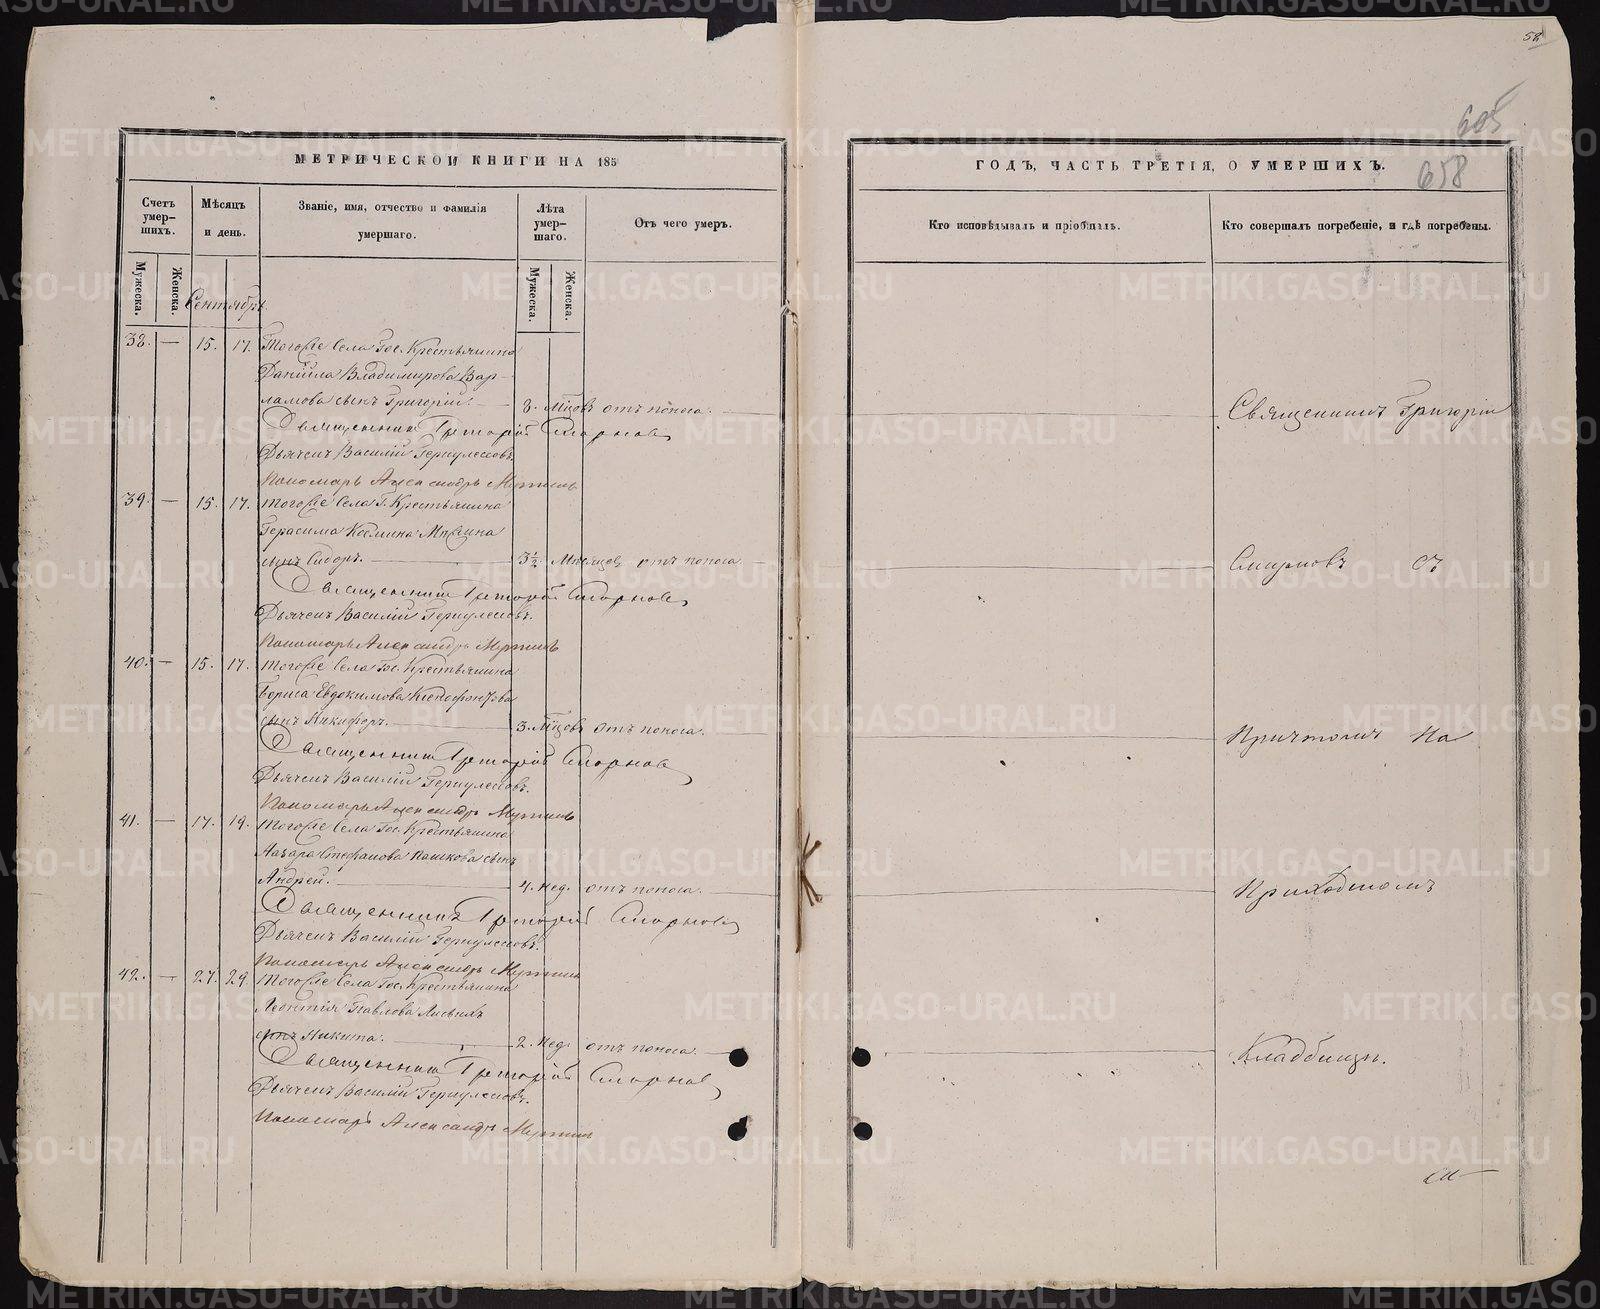 58
605
658
МЕТРИЧЕСКОЙ КНИГИ НА 185
ГОДЪ, ЧАСТЬ ТРЕТІЯ, О УМЕРШИХЪ.
Счетъ умер-
шихъ.
Мѣсяцъ
и день.
Званіе, имя, отчество и фамилія
умершаго.
Лѣта
умер-
шаго.
Отъ чего умеръ.
Кто исповѣдывалъ и пріобщалъ.
Кто совершалъ погребеніе, и гдѣ погребены.
Мужеска.
Женска.
Мужеска.
Женска.
Сентябрь
38. — 15. 17. Тогоже Села Гос. Крестьянина
Даніила Владимирова Вар-
ламова сынъ Григорій. 8. Мцовъ отъ поноса. Священникъ Григорій
Священникъ Григорій Смирновъ
Дьячекъ Василій Геркулесовъ.
Пономарь Александръ
39. — 15. 17. Тогоже Села Г. Крестьянина
Герасима Козмина
сынъ Сидоръ. 3½ Мѣсяцев отъ поноса. Смирновъ съ
Священникъ Григорій Смирновъ
Дьячекъ Василій Геркулесовъ.
Пономарь Александръ
40. — 15. 17. Тогоже Села Гос. Крестьянина
Бориса Евдокимова Ксенофонтова
сынъ Никифоръ. 3. Мцовъ отъ поноса. Причтомъ На
Священникъ Григорій Смирновъ
Дьячекъ Василій Геркулесовъ.
Пономарь Александръ
41. — 17. 19. Тогоже Села Гос. Крестьянина
Назара Стефанова Пашкова сынъ
Андрей. 4. нед. отъ поноса. Приходскомъ
Священникъ Григорій Смирновъ
Дьячекъ Василій Геркулесовъ.
Пономарь Александръ
42. — 27. 29. Тогоже Села Гос. Крестьянина
Леонтія Павлова
сынъ Никита. 2. нед. отъ поноса. Кладбищѣ.
Священникъ Григорій Смирновъ
Дьячекъ Василій Геркулесовъ.
Пономарь Александръ
METRIKI.GASO-URAL.RU